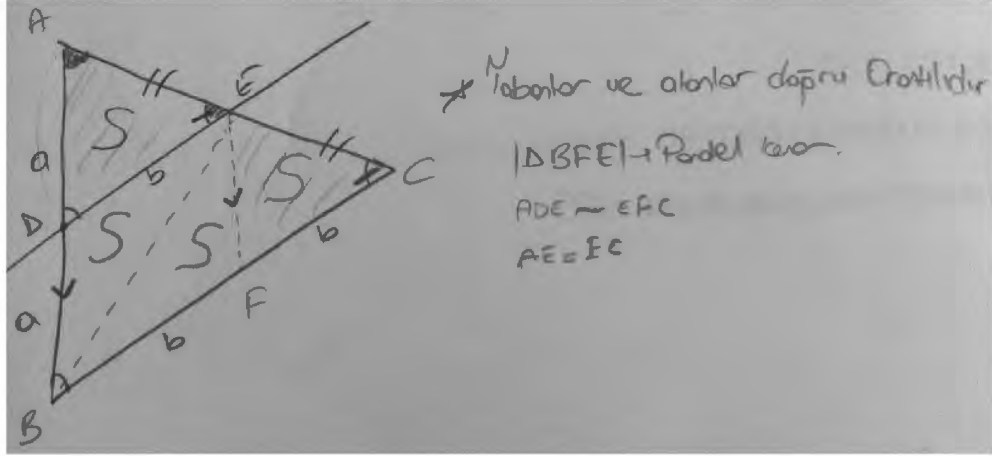 A
E
S
a
b
S
C
D
S
S
b
a
F
b
B
Tabanlar ve alanlar doğru Orantılıdır
|DBFE|→ Paralel kenar.
ADE ~ EFC
AE = EC